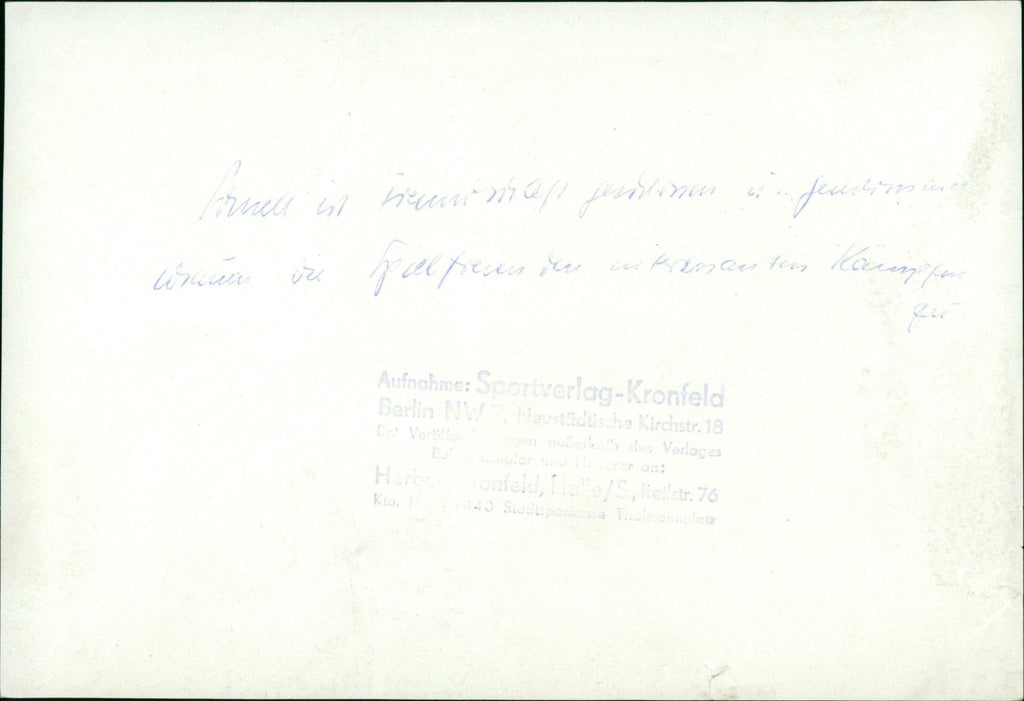 Schnell ist Freundschaft geschlossen u. gemeinsam
schauen die Spielfreunde den interessanten Kämpfen
zu
Aufnahme: Sportverlag-Kronfeld
Berlin NW 7, Neustädtische Kirchstr. 18
Bei Veröffentlichungen außerhalb des Verlages
Belegexemplar und Honorar an:
Kronfeld, Halle/S., Reilstr. 76
Kto. 440 Stadtsparkasse Thälmannplatz